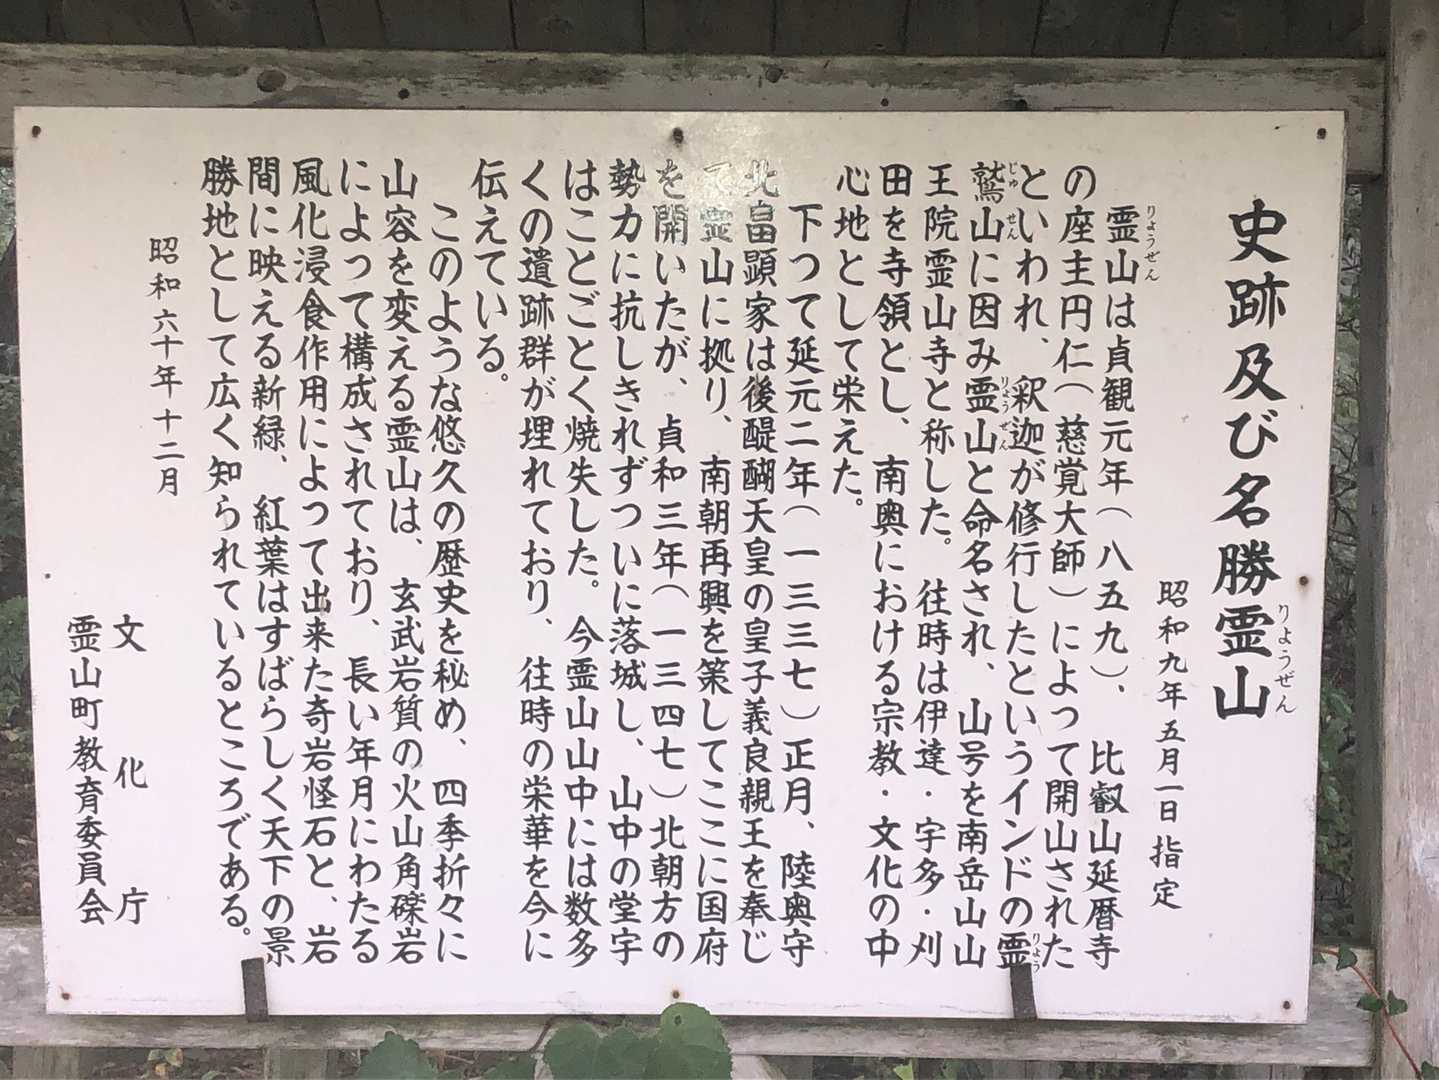 史跡及び名勝霊山
りょうぜん
昭和九年五月一日指定
りょうぜん
霊山は貞観元年(八五九)、比叡山延暦寺
の座主円仁(慈覚大師)によって開山された
といわれ、釈迦が修行したというインドの霊
りょう
じゅせん
鷲山に因み霊山と命名され、山号を南岳山山
りょうぜん
王院霊山寺と称した。往時は伊達・宇多・刈
田を寺領とし、南奥における宗教・文化の中
心地として栄えた。
下つて延元二年(一三三七)正月、陸奥守
北畠顕家は後醍醐天皇の皇子義良親王を奉じ
て霊山に拠り、南朝再興を策してここに国府
を開いたが、貞和三年(一三四七)北朝方の
勢力に抗しきれずついに落城し、山中の堂宇
はことごとく焼失した。今霊山山中には数多
くの遺跡群が埋れており、往時の栄華を今に
伝えている。
このような悠久の歴史を秘め、四季折々に
山容を変える霊山は、玄武岩質の火山角礫岩
によって構成されており、長い年月にわたる
風化浸食作用によって出来た奇岩怪石と、岩
間に映える新緑、紅葉はすばらしく天下の景
勝地として広く知られているところである。
昭和六十年十二月
文化庁
霊山町教育委員会